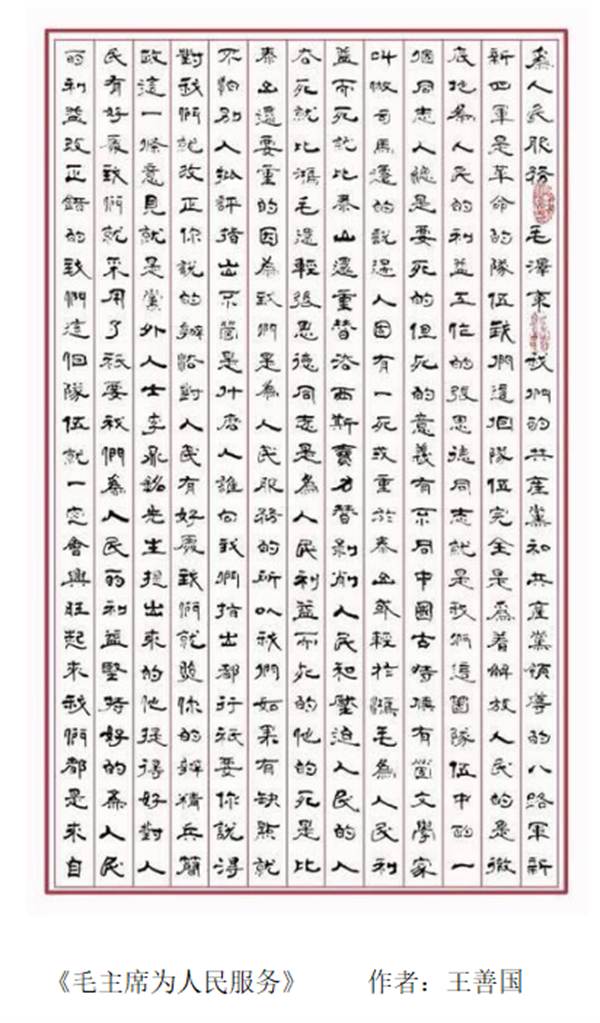 為人民服務毛澤東我們的共產黨和共產黨領導的八路軍新
新四軍是革命的隊伍我們這個隊伍完全是為着解放人民的是徹
底地為人民的利益工作的張思德同志就是我們這個隊伍中的一
個同志人總是要死的但死的意義有不同中國古時候有箇文學家
叫做司馬遷的說過人固有一死或重於泰山或輕於鴻毛為人民利
益而死就比泰山還重替法西斯賣力替剝削人民和壓迫人民的人
去死就比鴻毛還輕張思德同志是為人民利益而死的他的死是比
泰山還要重的因為我們是為人民服務的所以我們如果有缺點就
不怕別人批評指出不管是什麼人誰向我們指出都行祇要你說得
對我們就改正你說的辦法對人民有好處我們就照你的辦精兵簡
政這一條意見就是黨外人士李鼎銘先生提出來的他提得好對人
民有好處我們就采用了祇要我們為人民的利益堅持好的為人民
的利益改正錯的我們這個隊伍就一定會興旺起來我們都是來自
《毛主席为人民服务》 作者：王善国